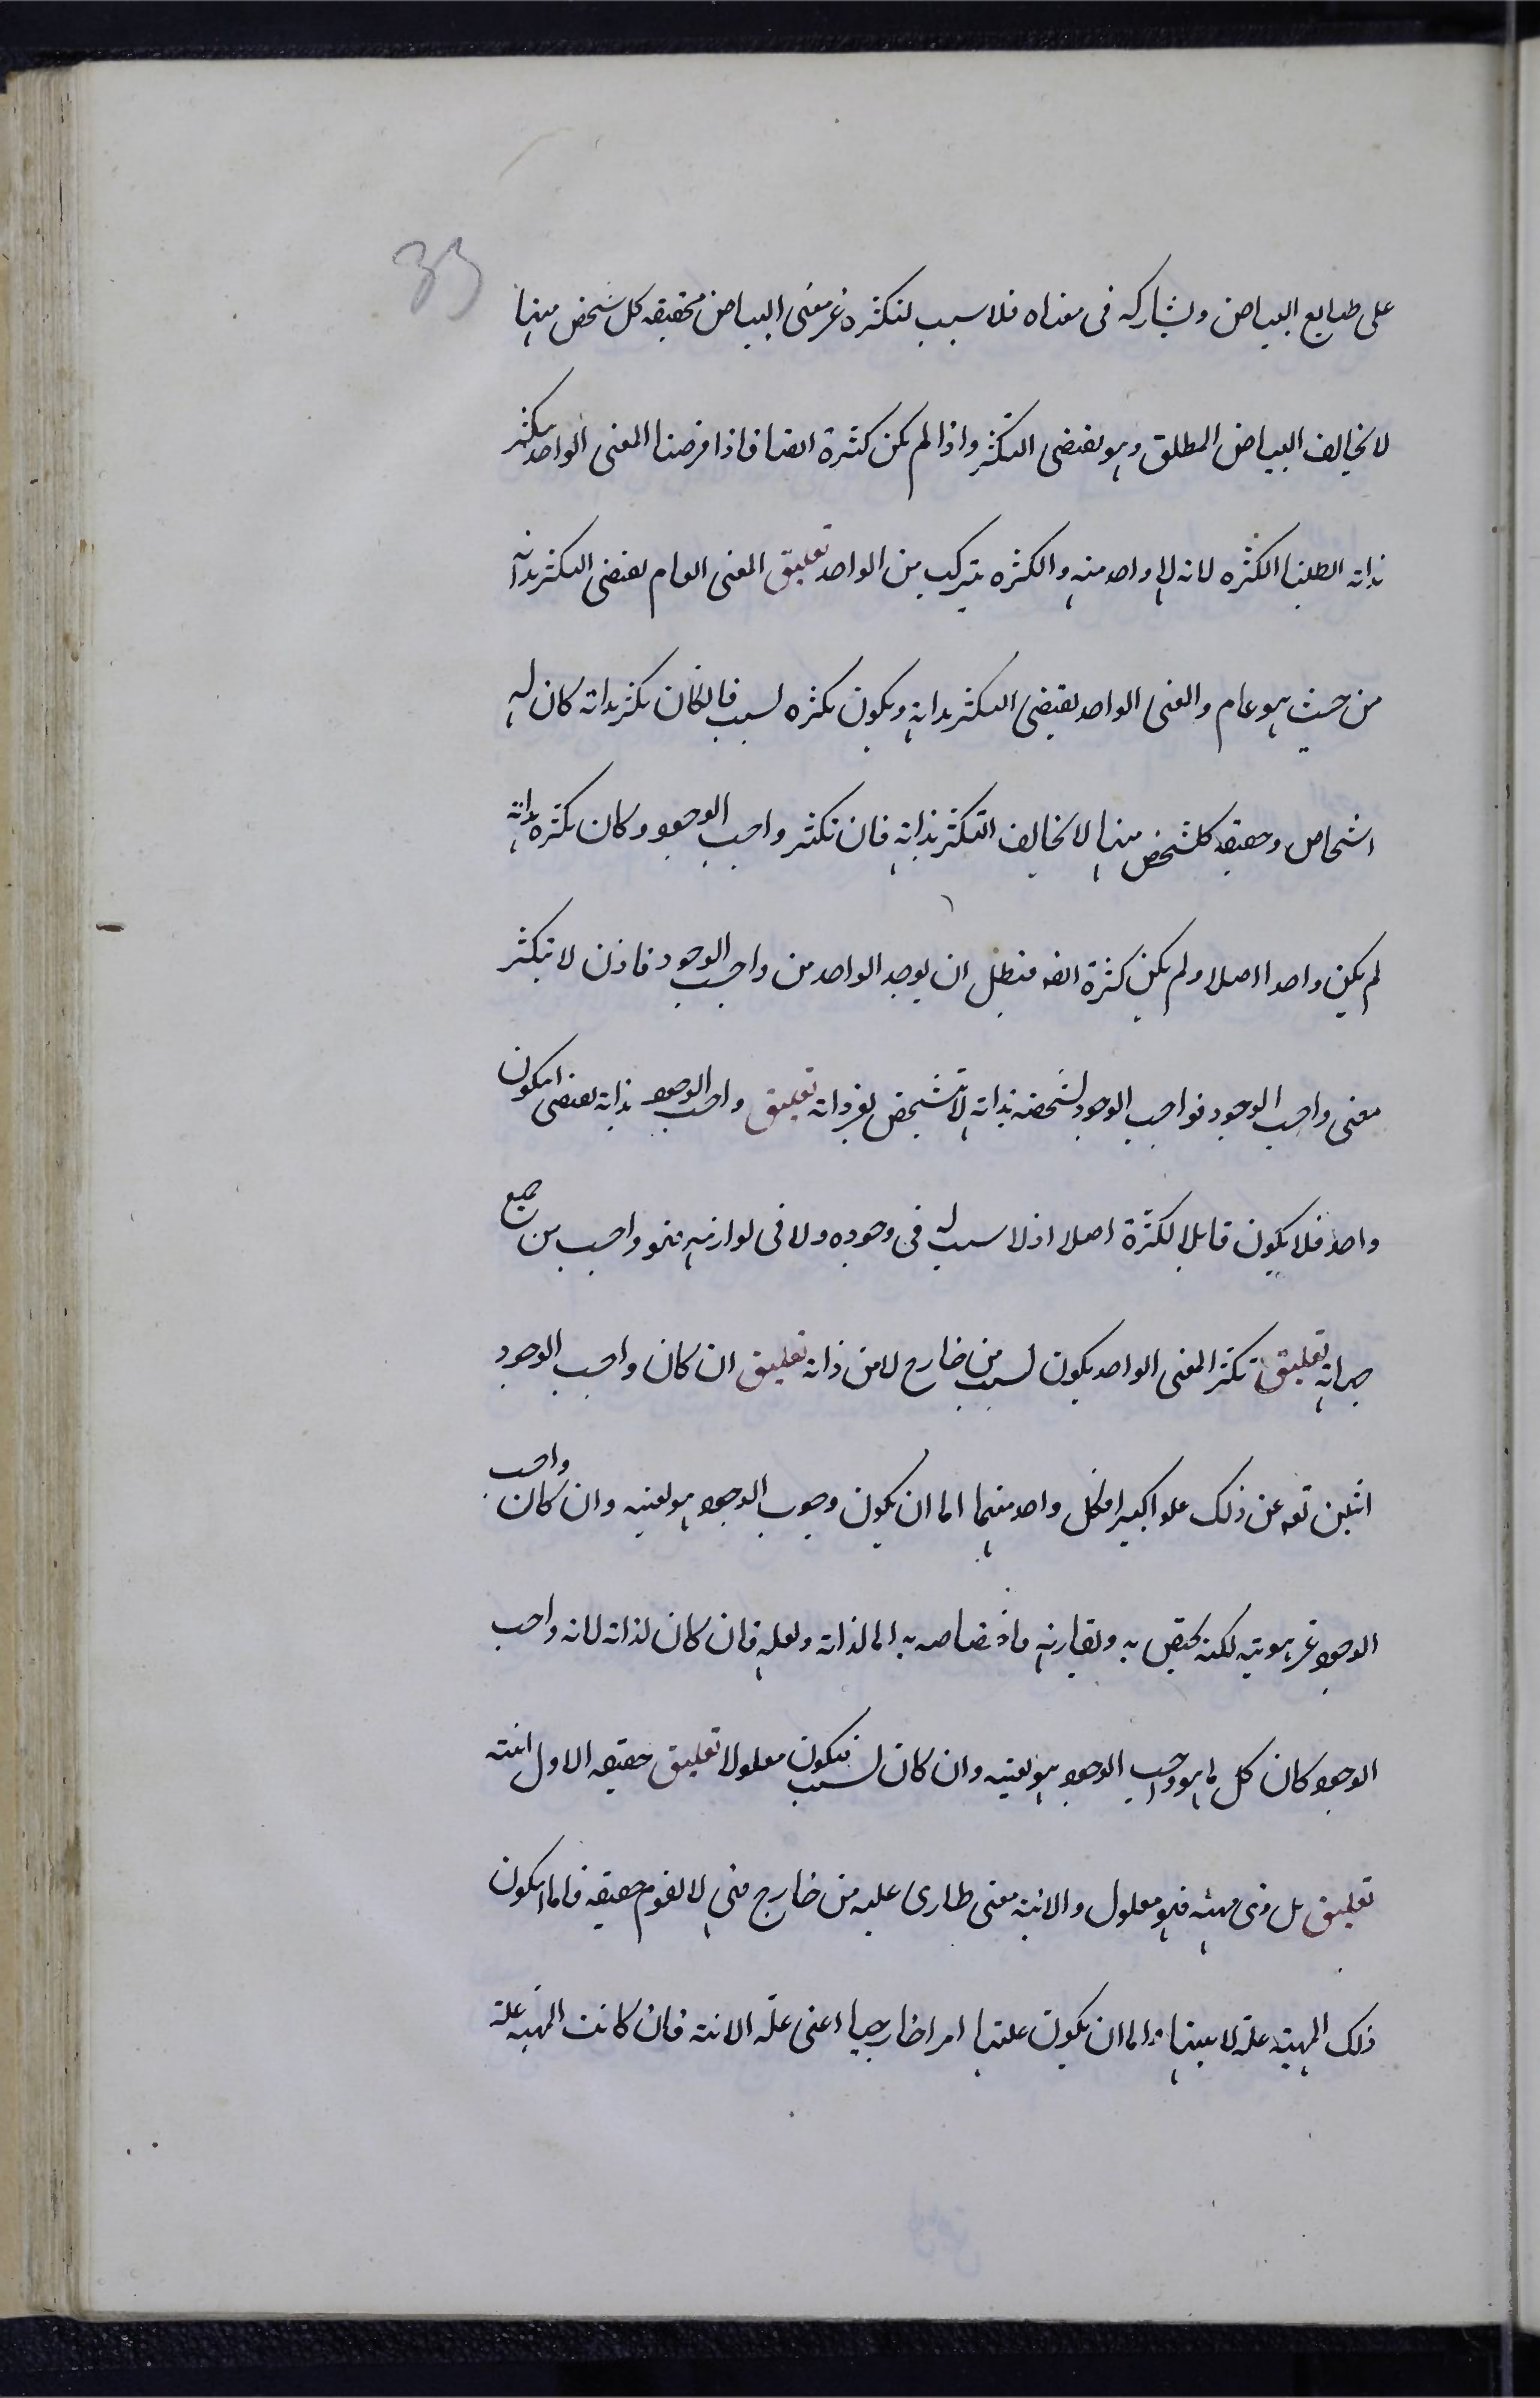 33
على طبايع البياض ويشاركه فى معناه فلا سبب لتكثره غير معنى البياض فحقيقه كل شخص منها
لا يخالف البياض المطلق وهو يقتضى التكثر واذا لم يكن كثرة ايضا فاذا فرضنا المعنى الواحد يتكثر
بذاته ابطلنا الكثره لانه لا واحد منه والكثره يتركب من الواحد تعليق المعنى العام يقتضى التكثر بذاته
من حيث هو عام والمعنى الواحد يقتضى التكثر بذاته ويكون تكثره لسبب فالكان تكثر بذاته كان له
اشخاص وحقيقه كلشخص منها لا يخالف التكثر بذاته فان تكثر واجب الوجود وكان تكثره بذاته
لم يكن واحدا اصلا ولم يكن كثرة ايضه فبطل ان يوجد الواحد من واجب الوجود فاذن لا يتكثر
معنى واجب الوجود فواجب الوجود لشخصه بذاته لا يتشخص بغير ذاته تعليق واجب الوجود بذاته يقتضى انيكون
واحد فلا يكون قابلا لكثرة اصلا اذ لا سبب له فى وجوده ولا فى لوازمه فهو واجب من جميع
جهاته تعليق تكثر المعنى الواحد يكون لسبب من خارج لا من ذاته تعليق ان كان واجب الوجود
اثنين تعه عن ذلك علوا كبيرا فكل واحد منهما اما ان يكون وجوب الوجود هو لعينه وان كان واجب
الوجود غير هويته لكنه يختص به ويقارنه فاختصاصه به اما لذاته ولعله فان كان لذاته لانه واجب
الوجود كان كل ما هو واجب الوجود هو لعينه وان كان لسبب فيكون معلولا تعليق حقيقه الاول انيته
تعليق كل ذى مهيته فهو معلول والانيه معنى طارى عليه من خارج فهى لا يقوم حقيقه فاما انيكون
ذلك المهيته علة لانيتها واما ان يكون علتها امرا خارجيا اعنى علة الانيه فان كانت المهيه علة